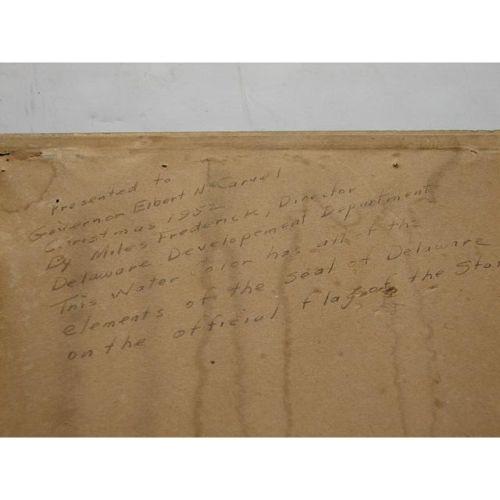 Presented to
Governor Elbert N Carvel
Christmas 1952
By Miles Frederick, Director
Delaware Developement Department
This Water Color has all of the
elements of the Seal of Delaware
on the official flag of the Sta